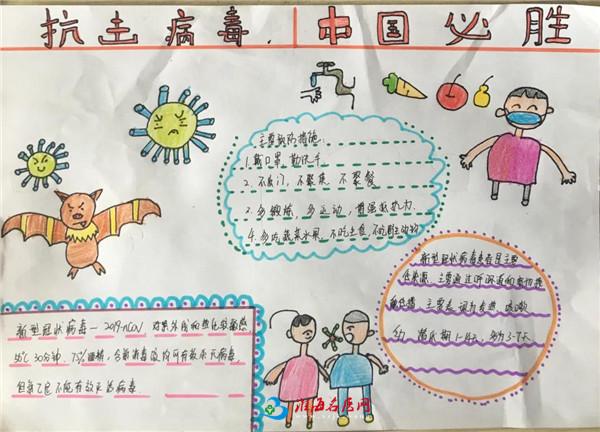 抗击病毒，中国必胜
主要预防措施：
1. 戴口罩，勤洗手
2. 不出门，不聚集，不聚餐
3. 多锻炼，多运动，增强抵抗力
4. 多吃蔬菜水果，不吃生食，不吃野生动物
新型冠状病毒—2019-nCoV，对紫外线和热比较敏感
56℃ 30分钟，75%酒精，含氯消毒液均可有效杀死病毒，
但氯己定不能有效灭活病毒
新型冠状病毒患者是主要
传染源，主要通过呼吸道和密切接
触传播，主要表现为发热，咳嗽
潜伏期1-14天，多为3-7天
淮海名医网